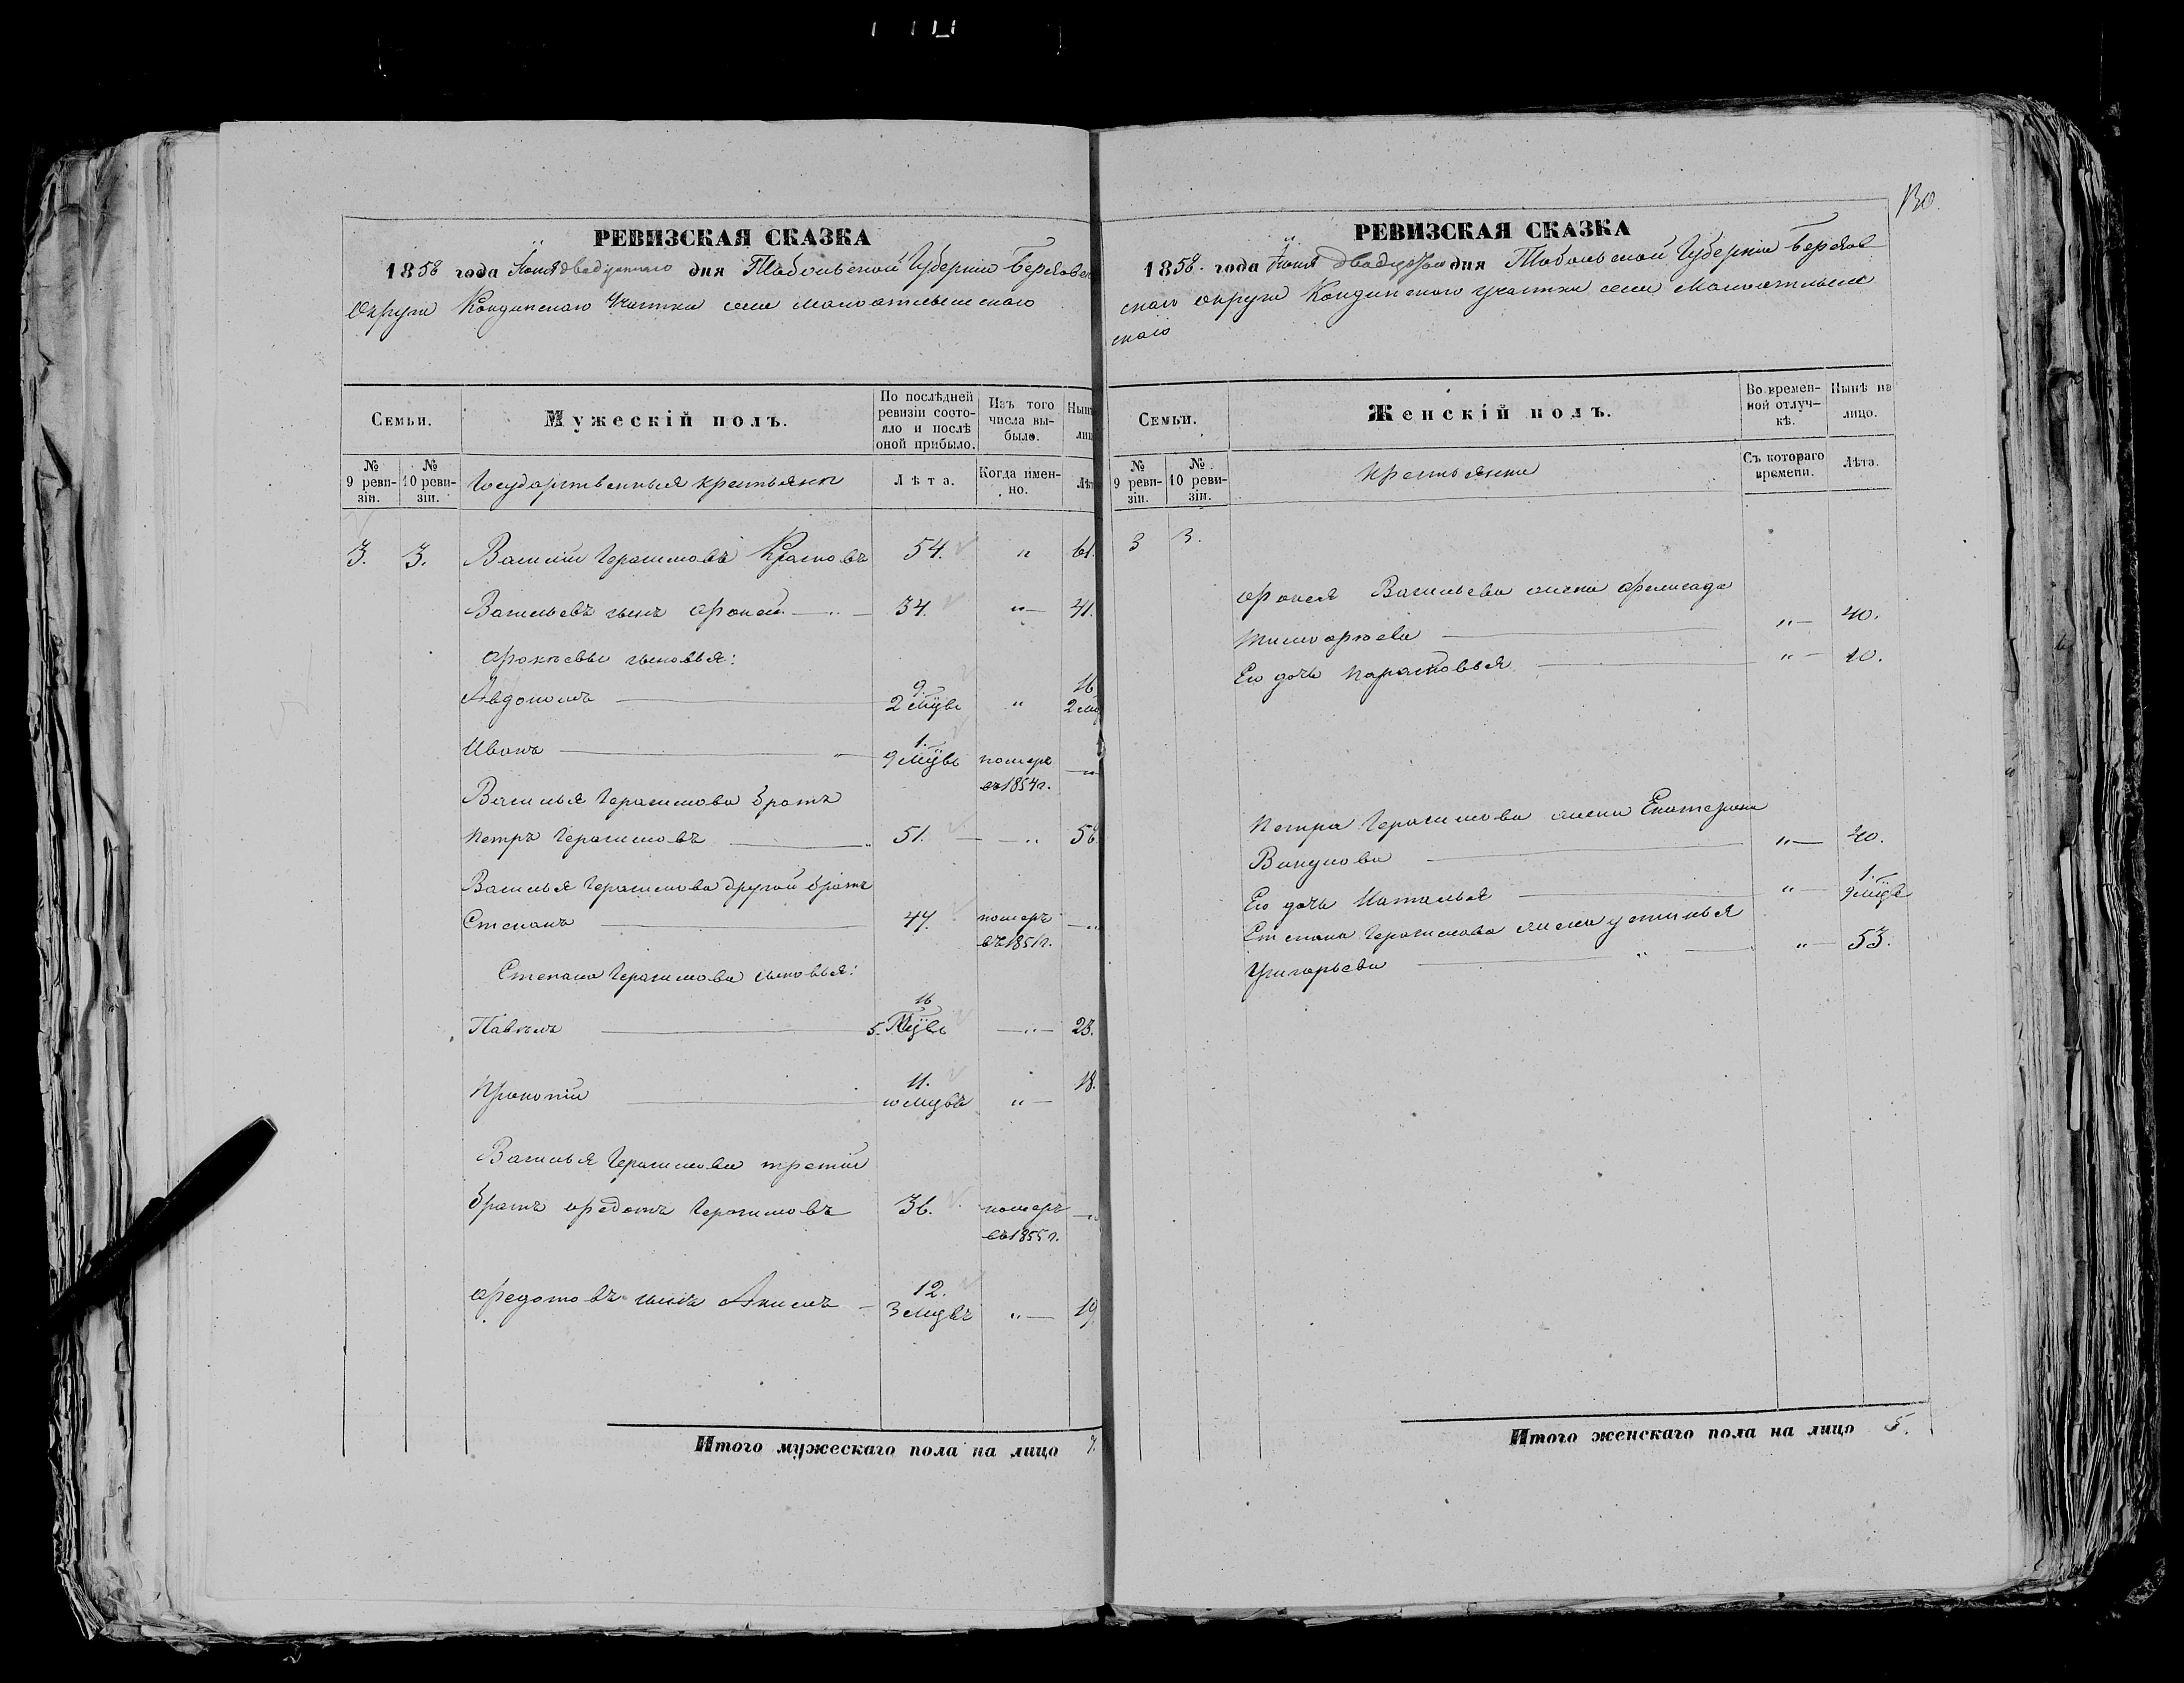 130.
РЕВИЗСКАЯ СКАЗКА
1858 года Іюня двадцатаго дня Тобольской Губерніи Березовск
Округа Кондинскаго Участка села Малоатлымскаго
Семьи.
Мужескій полъ.
По послѣдней ревизіи состояло и послѣ оной прибыло.
Изъ того числа выбыло.
Нын
лиц
№ 9 ревизіи.
№ 10 ревизіи.
Государственныя крестьяне
Лѣта.
Когда именно.
Лѣт
3. 3. Василій Герасимовъ Красновъ 54. " 61.
Васильевъ сынъ Фокой — " — 34. " — 41.
Фокѣевы сыновья:
9. 16
Авдокимъ — 2 мцвъ " 2 мц
1.
Иванъ — " — 9 мцвъ померъ — "
въ 1854 г.
Василья Герасимова братъ
Петръ Герасимовъ — " 51. — — " 58.
Василья Герасимова другой братъ
Степанъ — 47. померъ — "
въ 1851 г.
Степана Герасимова сыновья:
16
Павелъ — 5. Мцвъ — " — 23.
11. 18.
Прокопій — 10 мцвъ " —
Василья Герасимова третій
братъ Федотъ Герасимовъ 36. померъ — "
въ 1855 г.
12.
Федотовъ сынъ Акимъ — 3 мцвъ " — 19.
Итого мужескаго пола на лицо 7.
РЕВИЗСКАЯ СКАЗКА
1858. года Іюня двадцатаго дня Тобольской Губерніи Березов
скаго округа Кондинскаго участка села Малоатлым
скаго
Семьи.
Женскій полъ.
Во временной отлучкѣ.
Нынѣ на лицо.
№ 9 ревизіи.
№ 10 ревизіи.
Крестьянки
Съ котораго времени.
Лѣта.
3 3.
Фокея Васильева жена
Тимофѣева — " — 40.
Его дочь Парасковья — " — 10.
Петра Герасимова жена Екатерина
Викулова — " — 40.
1.
Его дочь Наталья — " — 9 мцвъ
Степана Герасимова жена Устинья
Григорьева — " — " — 53.
Итого женскаго пола на лицо 5.